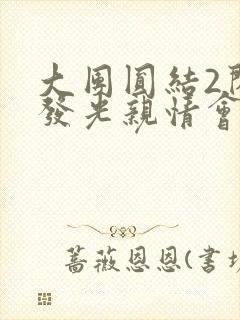 大團圓結2
發光親情會
薔薇恩恩(書